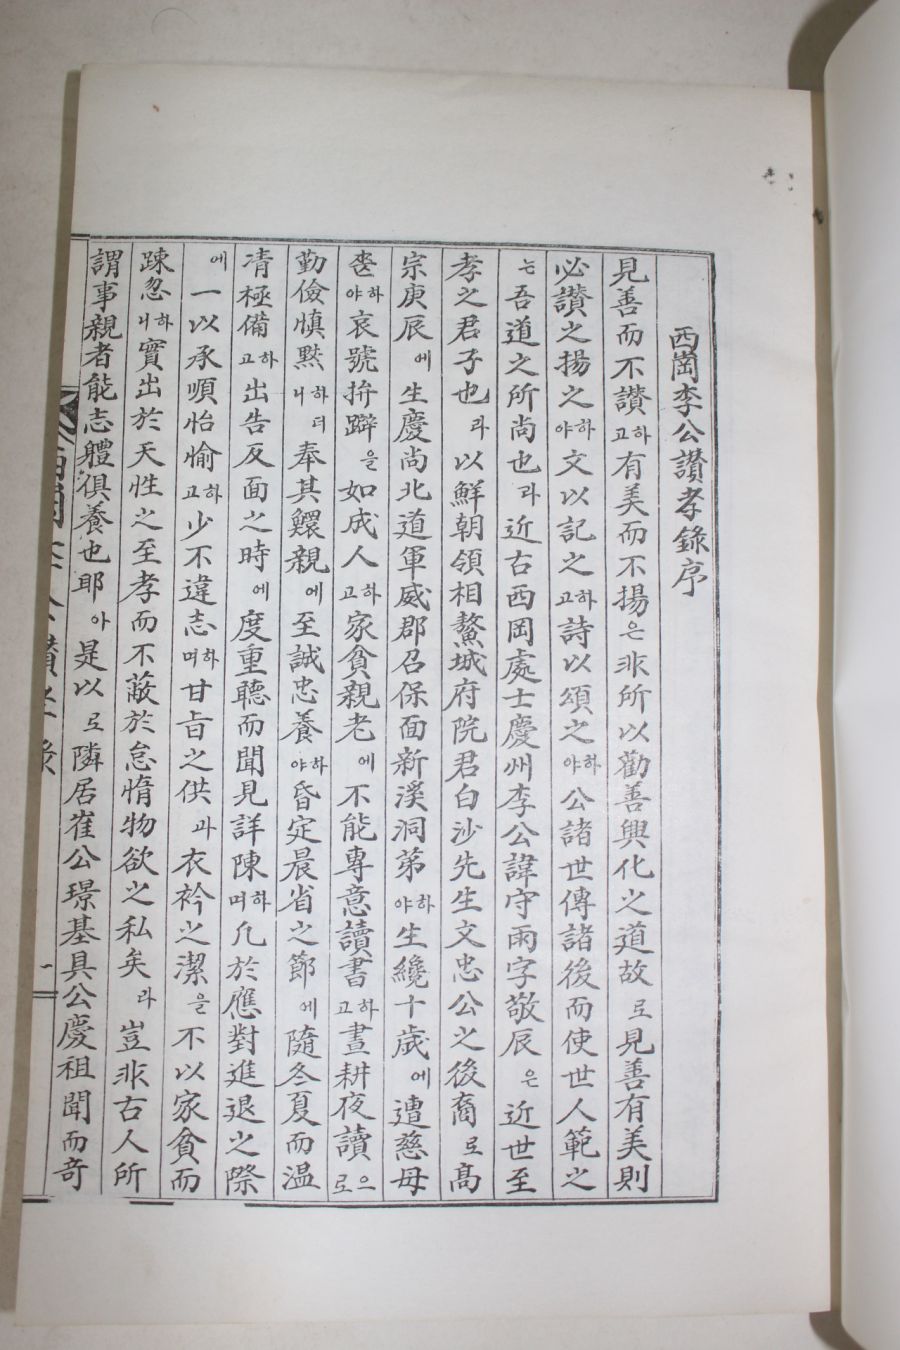 西崗李公讚孝錄序
見善而不讚하고有美而不揚은非所以勸善興化之道故로見善有美則
必讚之揚之하야文以記之하고詩以頌之하야公諸世傳諸後而使世人範之
는吾道之所尚也라近古西岡處士慶州李公諱守雨字敬辰은近世至
孝之君子也라以鮮朝領相鰲城府院君白沙先生文忠公之後裔로高
宗庚辰에生慶尚北道軍威郡召保面新溪洞第하야生纔十歲에遭慈母
喪하야哀號拚躃을如成人하고家貧親老에不能專意讀書하고晝耕夜讀으로
勤儉愼黙하더니奉其鰥親에至誠忠養하야昏定晨省之節에隨冬夏而温
凊極備하고出告反面之時에度重聽而聞見詳陳하며凡於應對進退之際
에一以承順怡愉하고少不違志하며甘旨之供과衣衿之潔을不以家貧而
踈忽하니實出於天性之至孝而不蔽於怠惰物欲之私矣라豈非古人所
謂事親者能志軆俱養也耶아是以로隣居崔公璟基具公慶祖聞而奇
李公讚孝錄
一